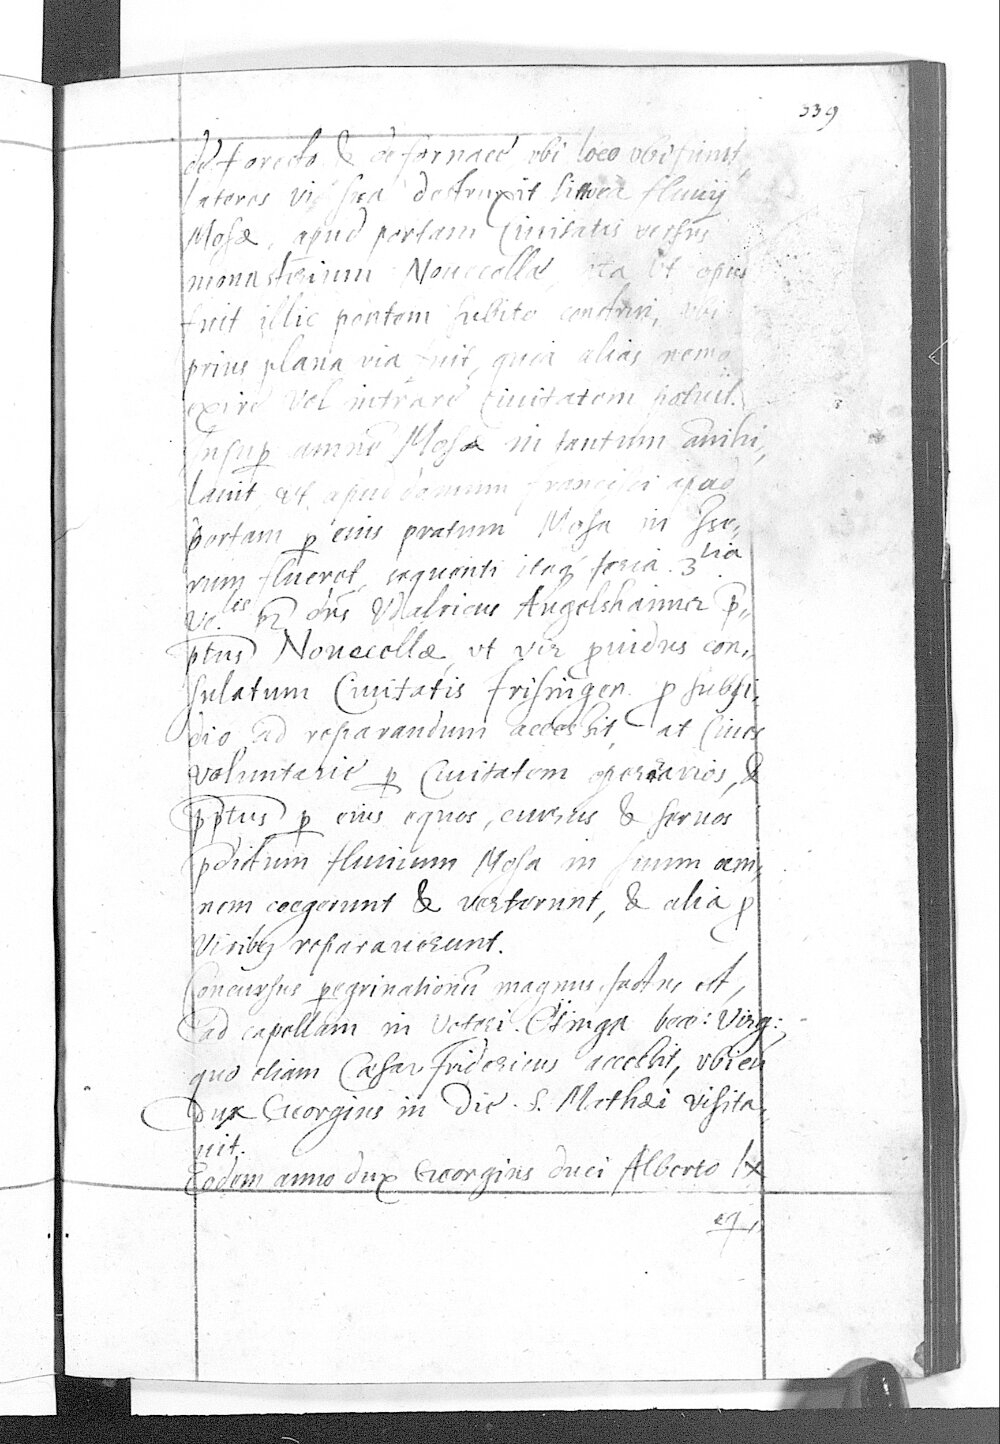 339
de foresto & de fornace vbi loco vbi fiunt
lateres destruxit fluuij
Mosæ, apud portam Ciuitatis versus
monasterium Nouecellæ, ita vt opus
fuit illic pontem subito construi, vbi
prius plana via fuit, quia alias nemo
exire vel intrare Ciuitatem potuit.
Insup amnē Mosæ in tantum anihi,
lauit, vt apud domum Francisci apud
portam p eius pratum Mosa in Iso,
rum flueret, sequenti itaq feria 3tia
dns Vdalricus Aigelshaimer p,,
ptus Nouecellæ, vt vir puidus con,,
sulatum Ciuitatis frisingen. p subsi,
dio ad reparandum accessit, at Ciues
voluntarie p Ciuitatem operarios, &
pptus p eius equos, currus & seruos
pdictum fluuium Mosa in suum am,
nem coegerunt & verterunt, & alia p
virib9 reparauerunt.
Concursus pegrinationū magnus factus est,
ad capellam in Veteri Ötinga bea: Virg:
quo etiam Cæsar Fridericus accessit, vbi eū
dux Georgius in die S. Mathæi visita,
uit.
Eodem anno dux Georgius duci Alberto lx